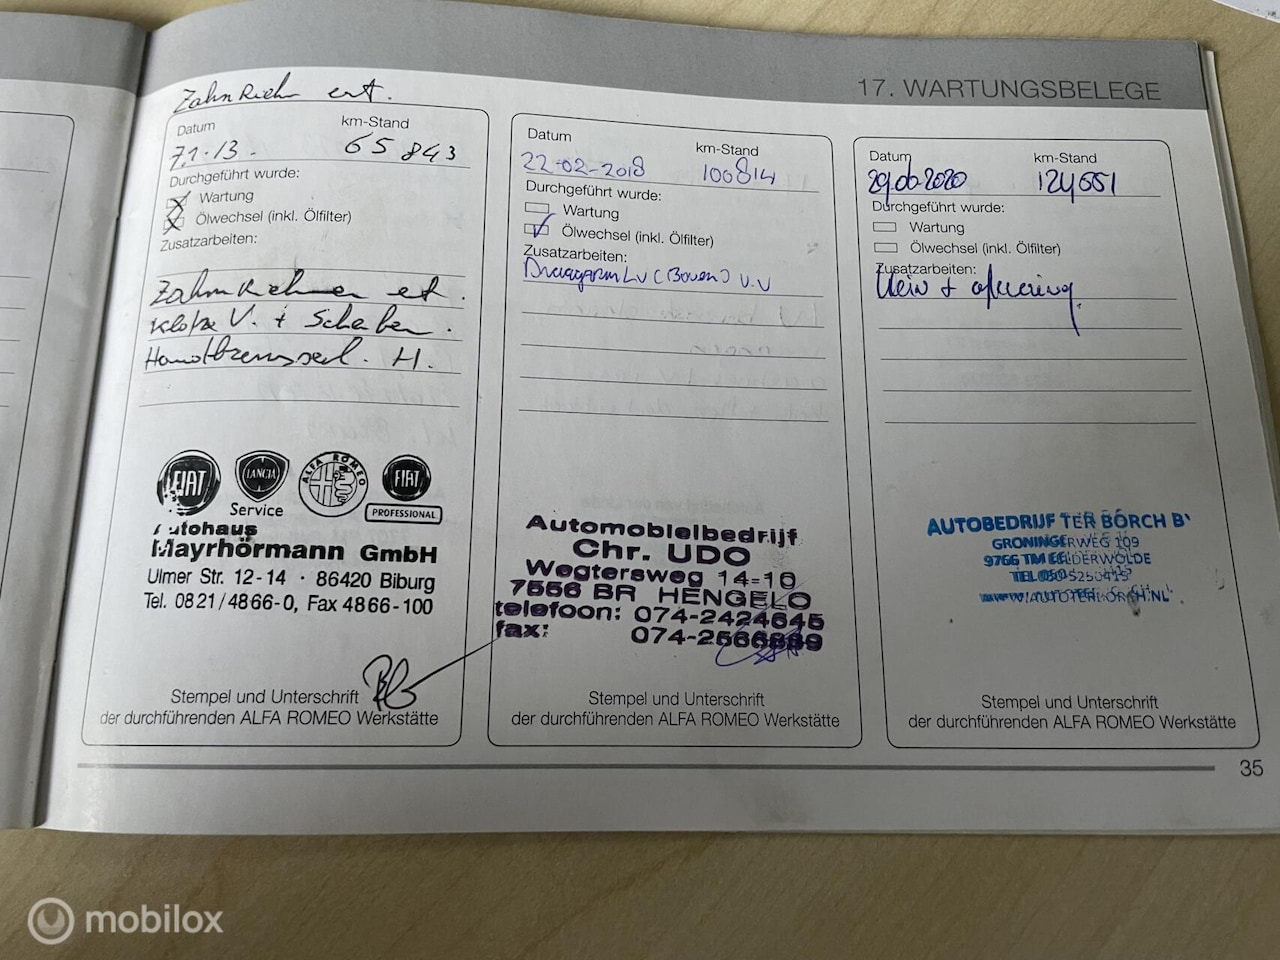 17. WARTUNGSBELEGE
ZahnRieh ert.
Datum km-Stand
7.1.13. 65 843
Durchgeführt wurde:
Wartung
Ölwechsel (inkl. Ölfilter)
Zusatzarbeiten:
ZahnRiehmen ert.
Klötze V. + Scheiben.
Handbremsseil. H.
FIAT
LANCIA
ALFA ROMEO
FIAT
Service
PROFESSIONAL
Autohaus
Mayrhörmann GmbH
Ulmer Str. 12-14 · 86420 Biburg
Tel. 0821/4866-0, Fax 4866-100
Stempel und Unterschrift
der durchführenden ALFA ROMEO Werkstätte
Datum km-Stand
22-02-2018 100814
Durchgeführt wurde:
Wartung
Ölwechsel (inkl. Ölfilter)
Zusatzarbeiten:
Draagarm Lv (Boven) v.v
Automobielbedrijf
Chr. UDO
Wegtersweg 14-10
7556 BR HENGELO
telefoon: 074-2424645
fax: 074-2566889
Stempel und Unterschrift
der durchführenden ALFA ROMEO Werkstätte
Datum km-Stand
29.06.2020 124651
Durchgeführt wurde:
Wartung
Ölwechsel (inkl. Ölfilter)
Zusatzarbeiten:
Klein +
AUTOBEDRIJF TER BORCH B
GRONINGERWEG 109
9766 TM EELDERWOLDE
TEL 050 5250415
WWW.AUTOTERBORCH.NL
Stempel und Unterschrift
der durchführenden ALFA ROMEO Werkstätte
35
mobilox